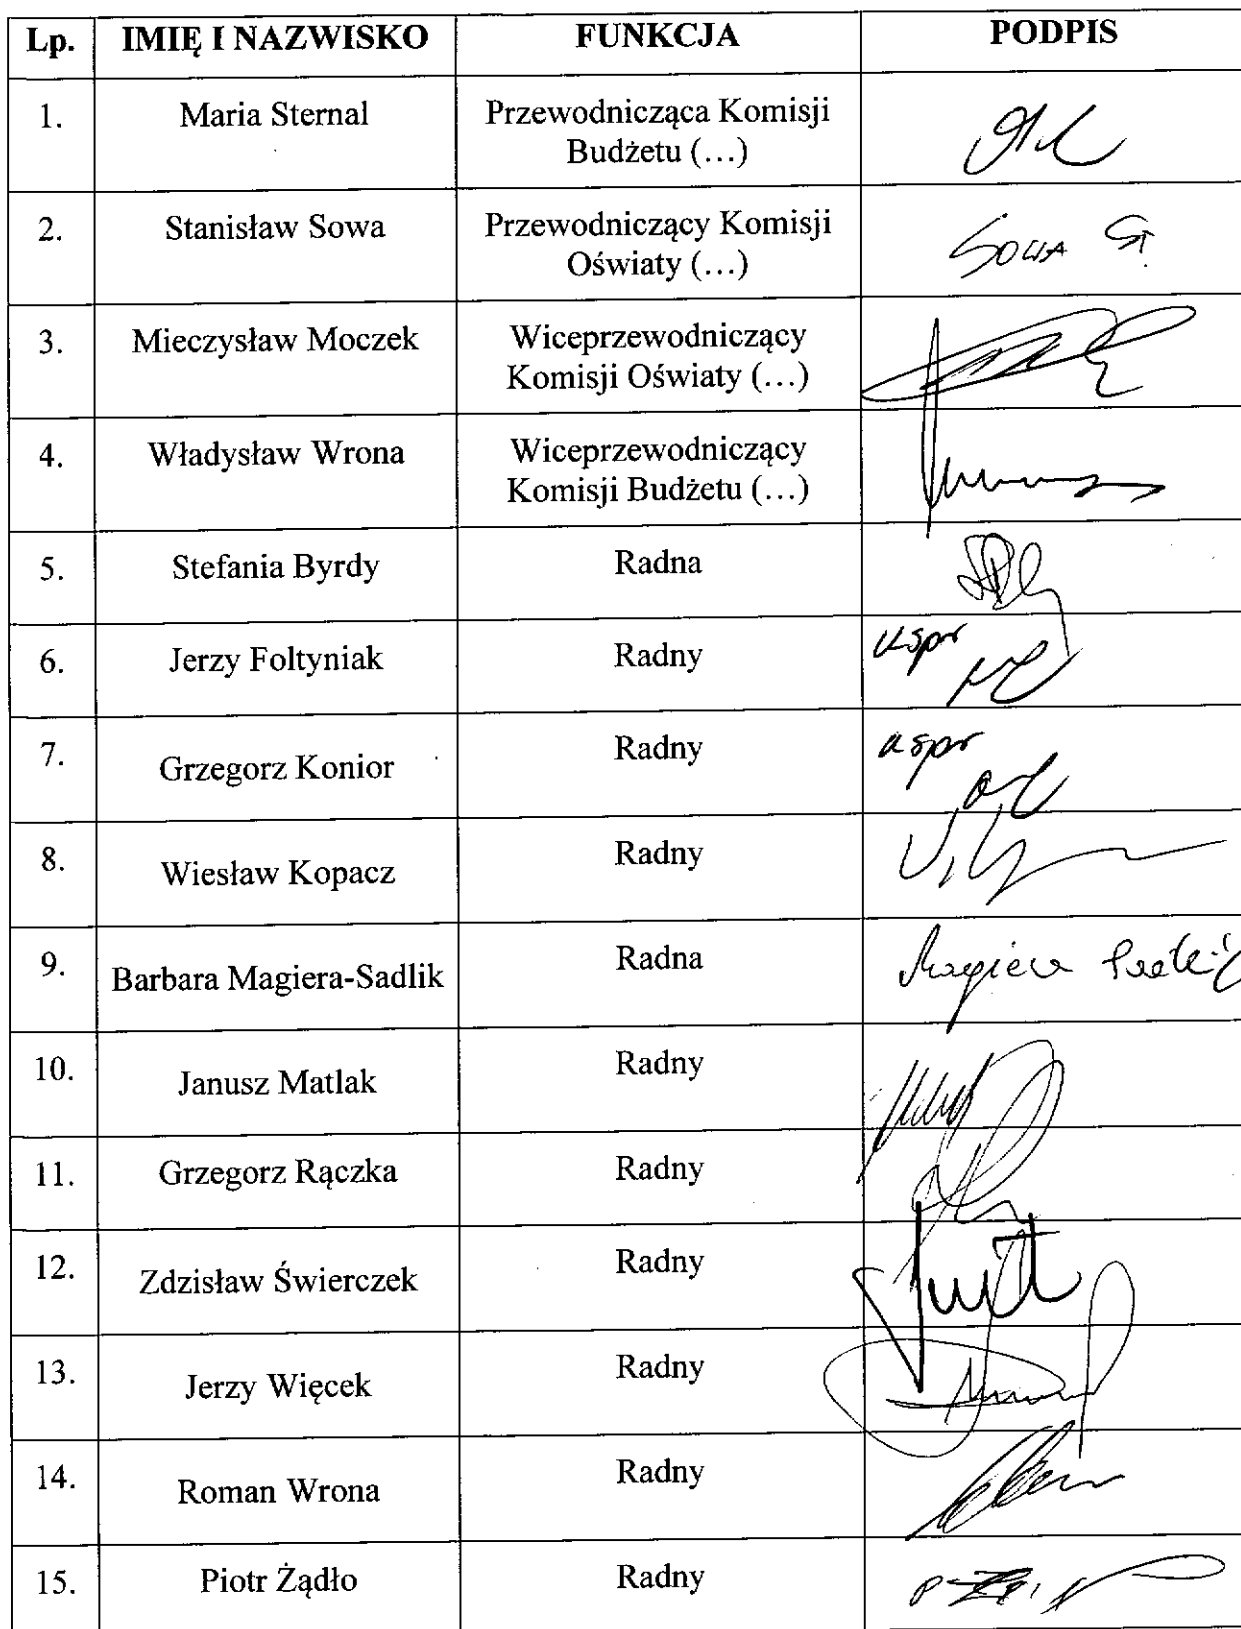 Lp. IMIĘ I NAZWISKO FUNKCJA PODPIS
1. Maria Sternal Przewodnicząca Komisji
Budżetu (...)
2. Stanisław Sowa Przewodniczący Komisji
Oświaty (...) SOWA ST.
3. Mieczysław Moczek Wiceprzewodniczący
Komisji Oświaty (...)
4. Władysław Wrona Wiceprzewodniczący
Komisji Budżetu (...)
5. Stefania Byrdy Radna
6. Jerzy Foltyniak Radny uspr
7. Grzegorz Konior Radny uspr
8. Wiesław Kopacz Radny
9. Barbara Magiera-Sadlik Radna Magiera Sadlik
10. Janusz Matlak Radny
11. Grzegorz Rączka Radny
12. Zdzisław Świerczek Radny
13. Jerzy Więcek Radny
14. Roman Wrona Radny
15. Piotr Żądło Radny